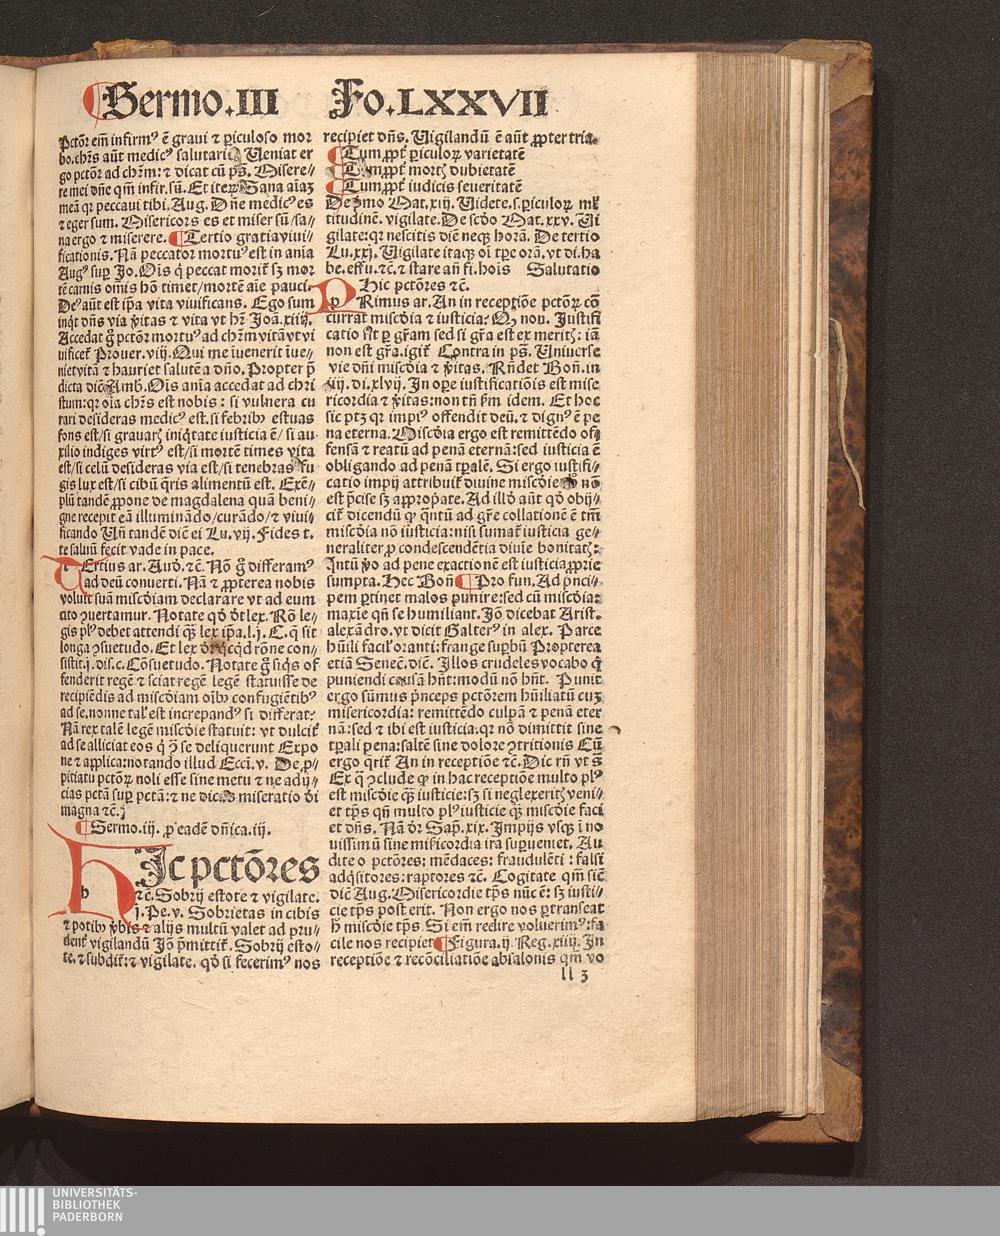 Sermo.III Fo.LXXVII
pctõr em̃ infirmꝰ ẽ graui ⁊ ꝑiculoso mor
bo. chr̃s aũt medicꝰ salutaris Veniat er
go pctõr ad chr̃m: ⁊ dicat cũ ps̃. Misere//
re mei dñe qm̃ infir. sũ. Et iteꝝ Sana aĩaꝫ
meã qꝛ peccaui tibi. Aug. Dñe medicꝰ es
⁊ eger sum. Misericors es et miser sũ/sa/
na ergo ⁊ miserere. Tertio gratia viui//
ficationis. Nã peccator mortuꝰ est in ania
Augꝰ suꝑ Jo. Oĩs q̃ peccat morit̃ sꝫ mor
tẽ carnis oms̃ hõ timet/mortẽ aĩe pauci.
Deꝰ aũt est ip̃a vita viuificans. Ego sum
inq̃t dñs via ṽitas ⁊ vita vt hr̃ Joã. xiiij.
Accedat g̊ pctõr mortuꝰ ad chr̃m vitã vt vi
uificet̃ Prouer. viij. Qui me ĩuenerit ĩue//
niet vitã ⁊ hauriet salutẽ a dño. Propter p̃
dicta diẽ Amb. Oĩs aĩa accedat ad chri
stum: qꝛ oĩa chr̃s est nobis: si vulnera cu
rari desideras medicꝰ est. si febribꝰ estuas
fons est/si grauarꝭ iniq̃tate iusticia ẽ/si au
xilio indiges virtꝰ est/si mortẽ times vita
est/si celũ desideras via est/si tenebras fu
gis lux est/si cibũ q̃ris alimentũ est. Exẽ//
plũ tandẽ ꝓpone de magdalena quã beni//
gne recepit eã illuminãdo/curãdo/⁊ viui//
ficando Vñ tandẽ diẽ ei Lu. vij. Fides t.
te saluũ fecit vade in pace.
TErtius ar. Aud. ⁊c̃. Nõ g̊ differamꝰ
ad deũ conuerti. Nã ⁊ ꝓpterea nobis
voluit suã misc̃diam declarare vt ad eum
cito ꝯuertamur. Notate qd̃ d̃t lex. Rõ le//
gis plꝰ debet attendi q̃ꝫ lex ip̃a. l. j. C. q̃ sit
longa ꝯsuetudo. Et lex dr̃ qcqd rõne con//
sistit. j. dis. c. Cõsuetudo. Notate g̊ siq̃s of
fenderit regẽ ⁊ sciat regẽ legẽ statuisse de
recipiẽdis ad misc̃diam oĩbꝰ confugiẽtibꝰ
ad se. nonne tal̃ est increpandꝰ si differat?
Nã rex talẽ legẽ misc̃die statuit: vt dulcit̃
ad se alliciat eos q̃ ꝯ̃ se deliquerunt Expo
ne ⁊ applica: notando illud Eccl̃. v. De ꝓ//
pitiatu pctõꝝ noli esse sine metu ⁊ ne adij//
cias pctã suꝑ pctã: ⁊ ne dicas miseratio dñi
magna ⁊c̃.
Sermo. iij. ꝓ eadẽ dñica. iij.
HIc pctõres
⁊c̃. Sobrij estote ⁊ vigilate.
j. Pe. v. Sobrietas in cibis
⁊ potibꝰ ṽbis ⁊ alijs multũ valet ad pru//
dent̃ vigilandũ Jõ p̃mittit̃. Sobrij esto//
te. ⁊ subdit̃: ⁊ vigilate. qd̃ si fecerimꝰ nos
recipiet dñs. Vigilandũ ẽ aũt ꝓpter tria.
Tum ꝓpt̃ ꝑiculoꝝ varietatẽ
Tum ꝓpt̃ mortꝭ dubietatẽ
Tum ꝓpt̃ iudicis seueritatẽ
De pmo Mat. xiij. Videte. s. ꝑiculoꝝ ml̃
titudinẽ. vigilate. De scd̃o Mat. xxv. Vi
gilate: qꝛ nescitis diẽ neqꝫ horã. De tertio
Lu. xxj. Vigilate itaqꝫ oĩ tꝑe orã. vt di. ha
be. effu. ⁊c̃. ⁊ stare añ fi. hoĩs Salutatio
Hic pctõres ⁊c̃.
PRimus ar. An in receptiõe pctõꝝ cõ
currat misc̃dia ⁊ iusticia? Qꝫ non. Justifi
catio fit ꝑ gr̃am sed si gr̃a est ex meritꝭ: iã
non est gr̃a. igit̃ Contra in ps̃. Vniuerse
vie dñi misc̃dia ⁊ ṽitas. Rñdet Bon̄. in
iiij. di. xlvij. In oꝑe iustificatiõis est mise
ricordia ⁊ ṽitas: non tñ ẜm idem. Et hoc
sic ptꝫ qꝛ impiꝰ offendit deũ. ⁊ dignꝰ ẽ pe
na eterna. Misc̃dia ergo est remittẽdo of//
fensã ⁊ reatũ ad penã eternã: sed iusticia ẽ
obligando ad penã tꝑalẽ. Si ergo iustifi//
catio impij attribuit̃ diuine misc̃die nõ
est p̃cise sꝫ appropate. Ad illd̃ aũt qd̃ obij//
cit̃ dicendũ ꝙ q̃ntũ ad gr̃e collationẽ ẽ tm̃
misc̃dia nõ iusticia: nisi sumat̃ iusticia ge//
neraliter ꝓ condescendẽtia diuĩe bonitatꝭ:
Jntũ ṽo ad pene exactionẽ est iusticia ꝓprie
sumpta. Hec Bon̄ Pro fun. Ad p̃nci//
pem ꝑtinet malos punire: sed cũ misc̃dia:
maxĩe qñ se humiliant. Jõ dicebat Arist.
alexãdro. vt dicit Galterꝰ in alex. Parce
hũili facil̃ oranti: frange supbũ Propterea
etiã Senec̃. diẽ. Illos crudeles vocabo q̃
puniendi causã hñt: modũ nõ hñt. Punit
ergo sũmus p̃nceps pctõrem hũiliatũ cuꝫ
misericordia: remittẽdo culpã ⁊ penã eter
nã: sed ⁊ ibi est iusticia. qꝛ nõ dimittit sine
tꝑali pena: saltẽ sine dolore ꝯtritionis Cũ
ergo q̃rit̃ An in receptiõe ⁊c̃. Dic rñ vt s̃
Ex q̃ ꝯclude ꝙ in hac receptiõe multo plꝰ
est misc̃die q̃ꝫ iusticie: sꝫ si neglexeritꝭ veni//
et tp̃s qñ multo plꝰ iusticie q̃ꝫ misc̃die faci
et dñs. Nã dr̃ Sap̃. xix. Impijs vsqꝫ ĩ no
uissimũ sine mi͠ricordia ira suꝑueniet. Au
dite o pctõres: mẽdaces: fraudulẽti: falsi
adq̃sitores: raptores ⁊c̃. Cogitate qm̃ sic̃
diẽ Aug. Misericordie tp̃s nũc ẽ: sꝫ iusti//
cie tp̃s post erit. Non ergo nos ꝑtranseat
h̃ misc̃die tp̃s. Si em̃ redire voluerimꝰ: fa
cile nos recipiet Figura. ij. Reg. xiiij. In
receptiõe ⁊ recõciliatiõe absalonis qm̃ vo
ll 3
UNIVERSITÄTS-
BIBLIOTHEK
PADERBORN